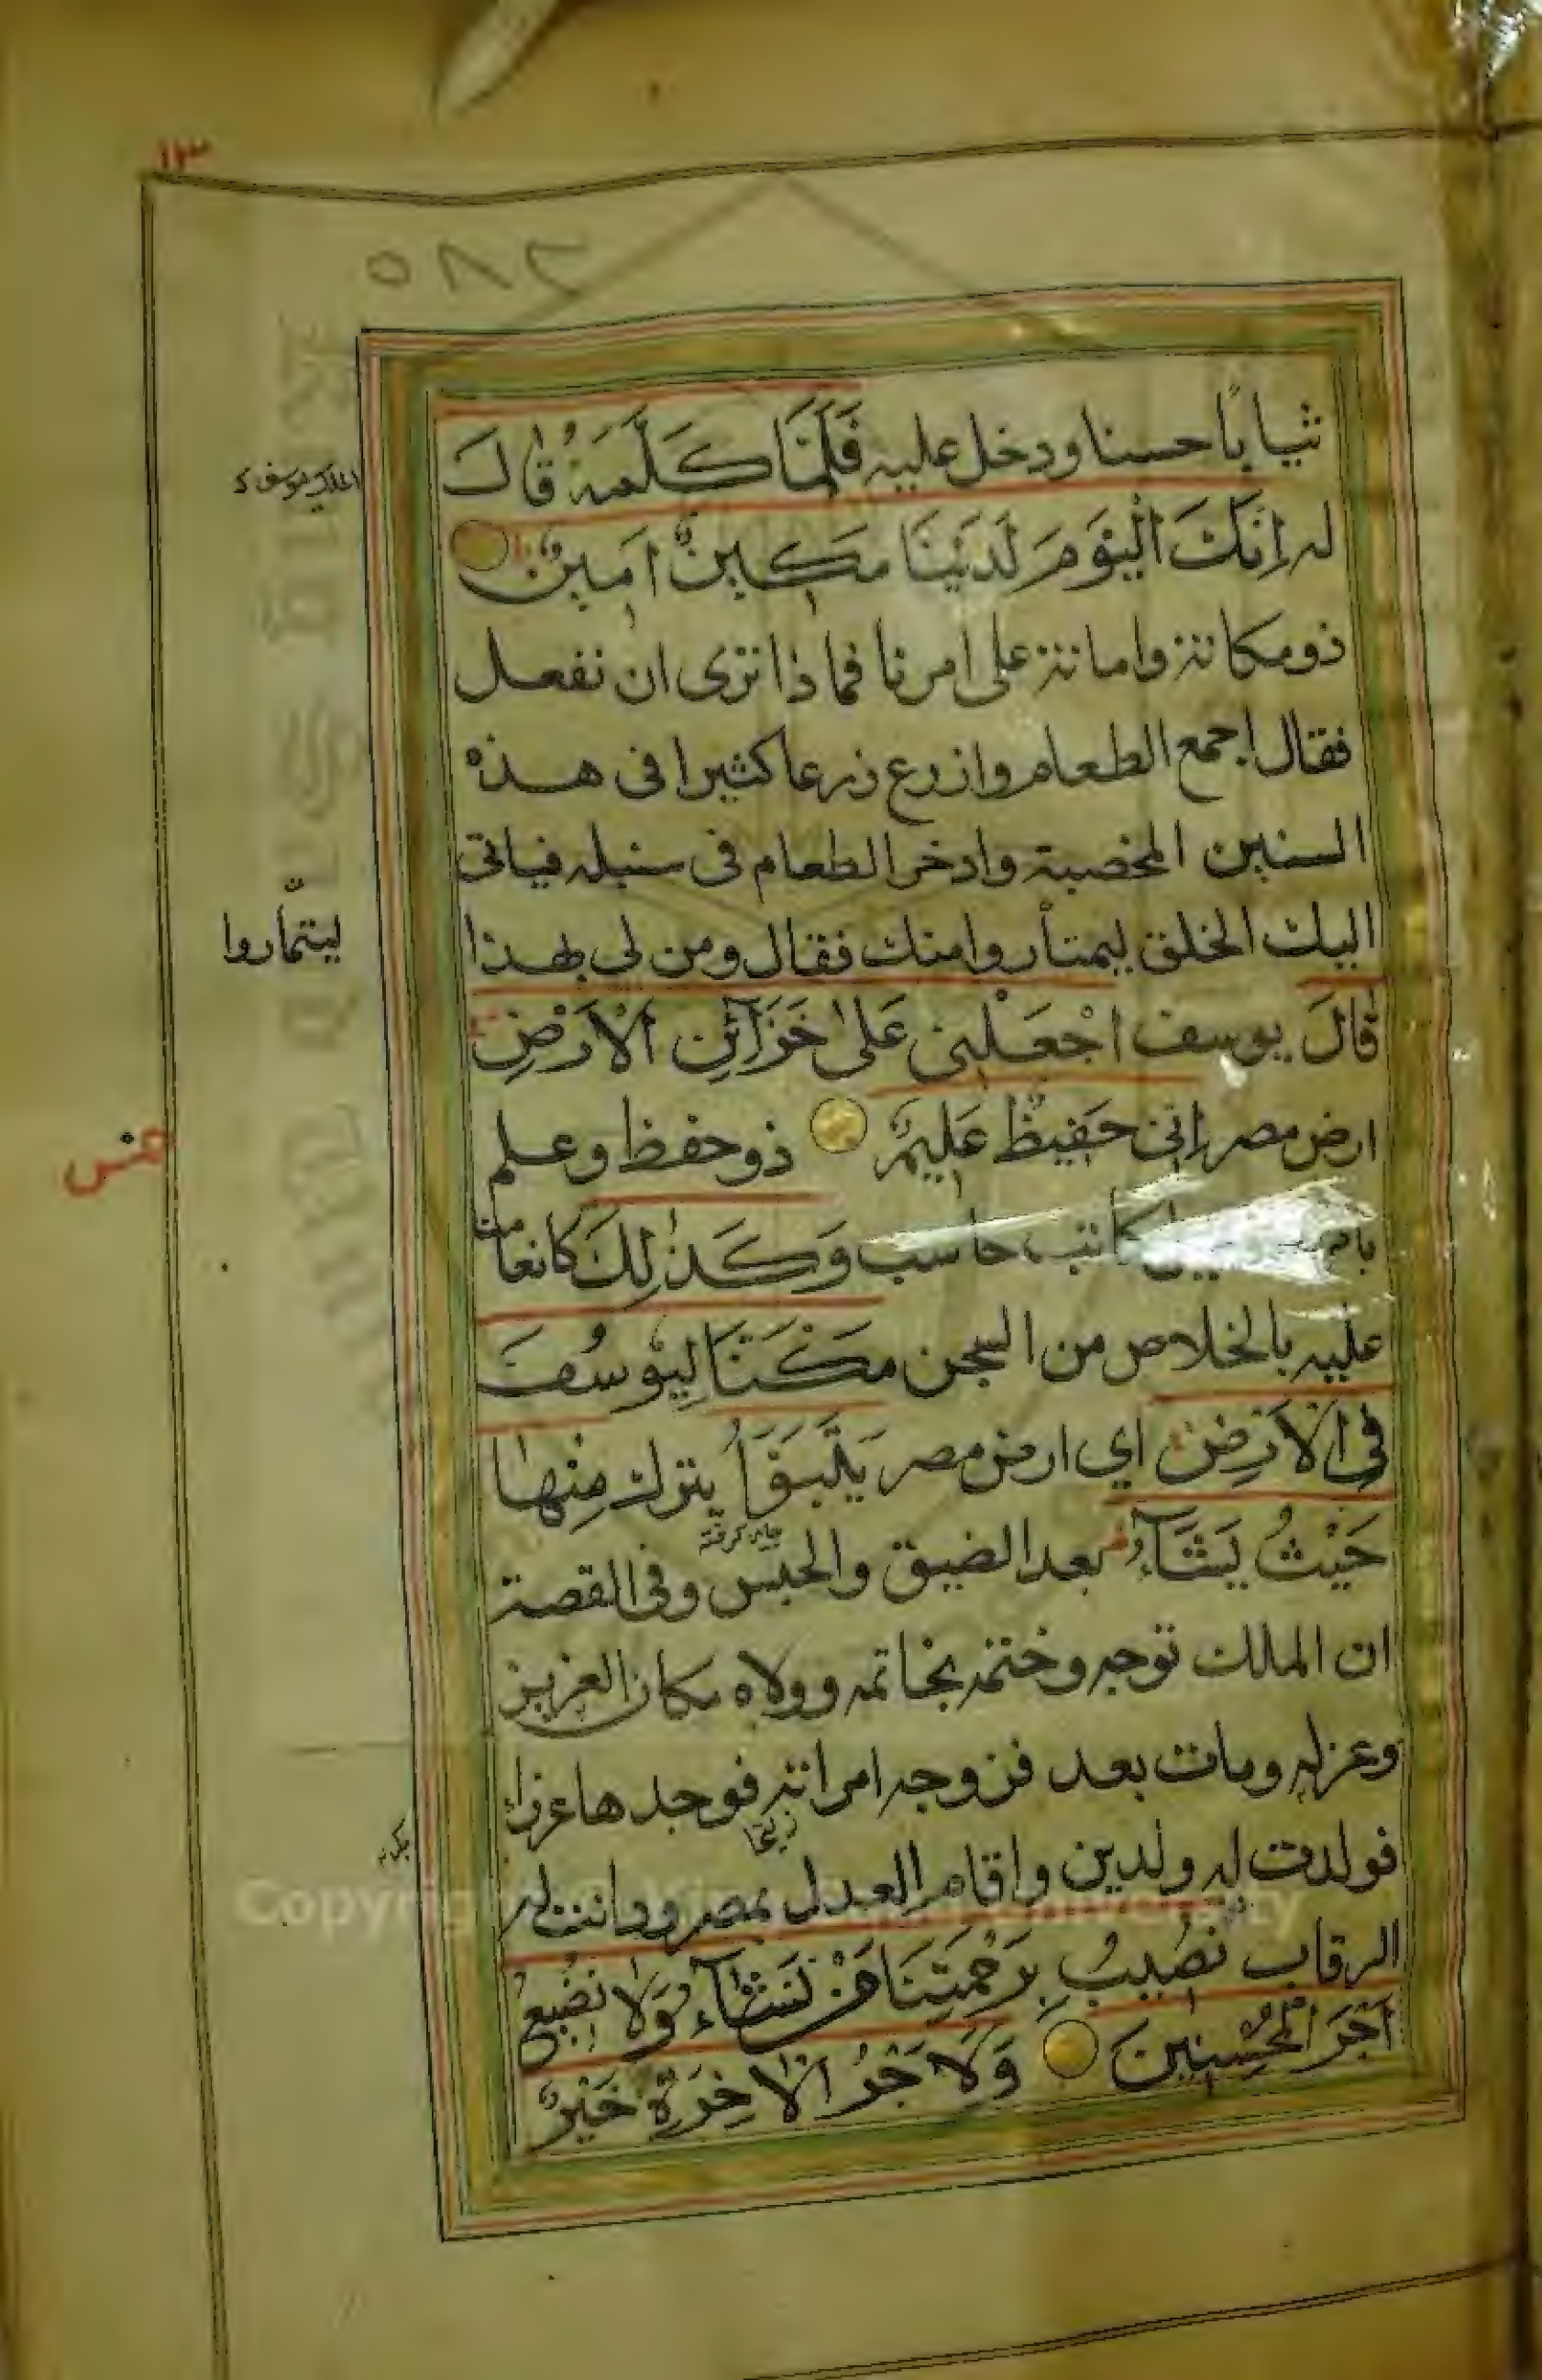 ١٢٣
٢٨٥
ثيابًا حسنا ودخل عليه فَلَمَّا كَلَّمَهُ قَالَ
له اِنَّكَ الْيَوْمَ لَدَيْنَا مَكِينٌ اَمِينٌ
ذو مكانة وامانة على امرنا فما ذا ترى ان نفعل
فقال اجمع الطعام وازرع زرعا كثيرا فى هذه
السنين المخصبة وادخر الطعام فى سنبله فياتى
ليتمأروا
اليك الخلق ليمتأروا منك فقال ومن لي بهذا
قَالَ يوسف اجْعَلْنِى عَلٰى خَزَآئِنِ الْاَرْضِ
خمس
ارض مصر اِنِّى حَفِيظٌ عَلِيمٌ ذو حفظ وعلم
كاتب حاسب وَكَذٰلِكَ كانعامنا
عليه بالخلاص من السجن مَكَّنَّا لِيُوسُفَ
فِى الْاَرْضِ اي ارض مصر يَتَبَوَّاُ ينزل مِنْهَا
حَيْثُ يَشَآءُ بعد الضيق والحبس وفى القصة
ان الملك توجه وختمه بخاتمه وولاه مكان العزيز
وعزله ومات بعد فزوجه امراته فوجدها عزراء
زليخا
فولدت له ولدين واقام العدل بمصر ودانت له
الرقاب نُصِيبُ بِرَحْمَتِنَا مَنْ نَشَآءُ وَلَا نُضِيعُ
اَجْرَ الْمُحْسِنِينَ وَلَاَجْرُ الْاٰخِرَةِ خَيْرٌ